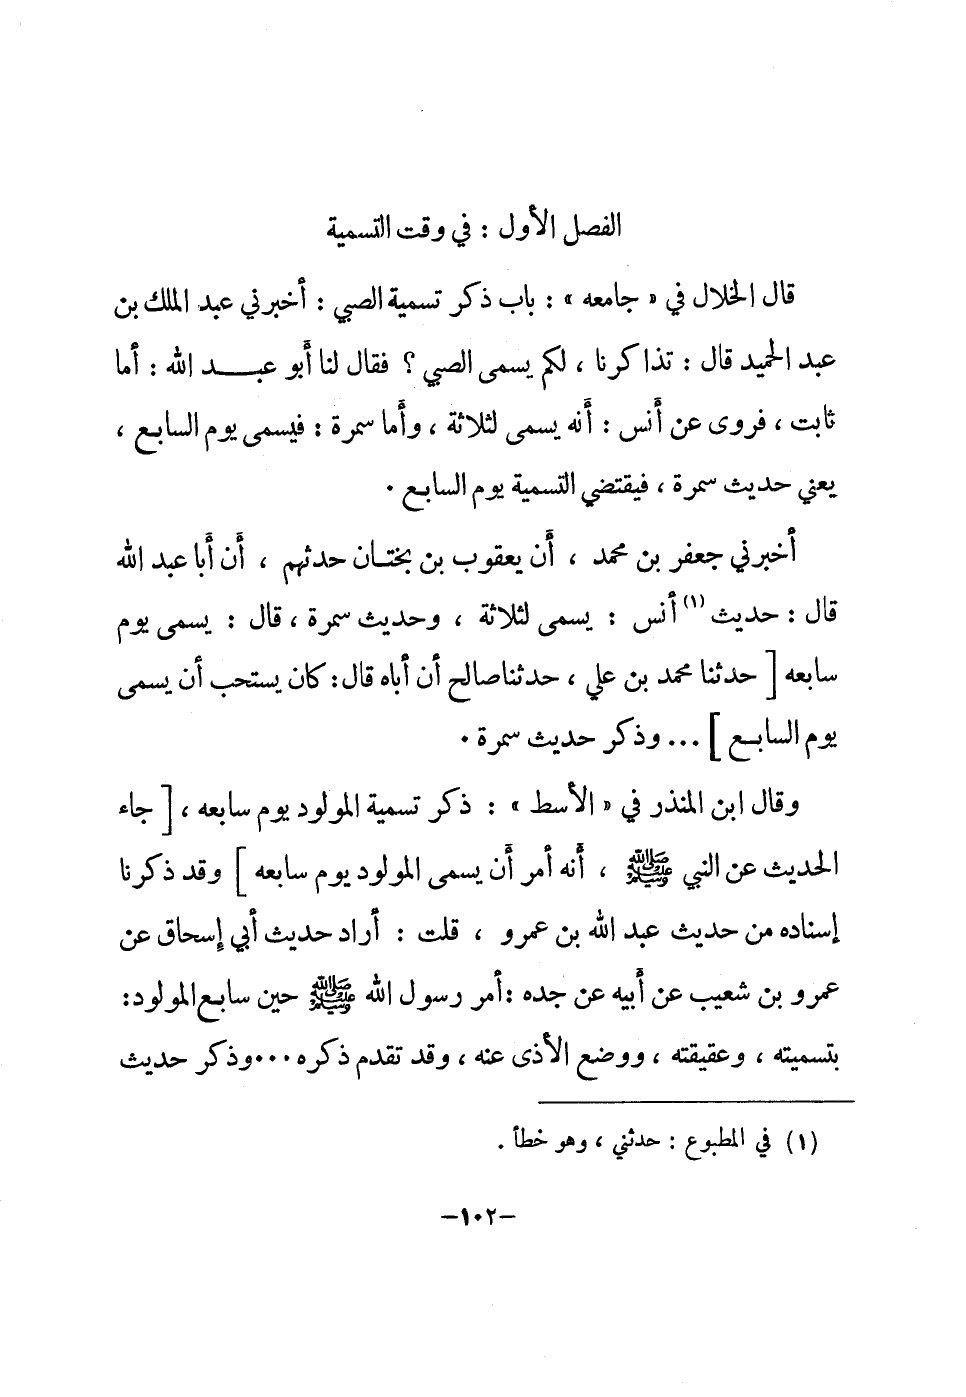 الفصل الأول : في وقت التسمية
قال الخلال في « جامعه » : باب ذكر تسمية الصبي : أخبرني عبد الملك بن
عبد الحميد قال : تذاكرنا ، لكم يسمى الصبي ؟ فقال لنا أبو عبد الله : أما
ثابت ، فروى عن أنس : أنه يسمى لثلاثة ، وأما سمرة : فيسمى يوم السابع ،
يعني حديث سمرة ، فيقتضي التسمية يوم السابع .
أخبرني جعفر بن محمد ، أن يعقوب بن بختان حدثهم ، أن أبا عبد الله
قال : حديث (١) أنس : يسمى لثلاثة ، وحديث سمرة ، قال : يسمى يوم
سابعه [ حدثنا محمد بن علي ، حدثنا صالح أن أباه قال : كان يستحب أن يسمى
يوم السابع ] ... وذكر حديث سمرة .
وقال ابن المنذر في « الأسط » : ذكر تسمية المولود يوم سابعه ، [ جاء
الحديث عن النبي ﷺ ، أنه أمر أن يسمى المولود يوم سابعه ] وقد ذكرنا
إسناده من حديث عبد الله بن عمرو ، قلت : أراد حديث أبي إسحاق عن
عمرو بن شعيب عن أبيه عن جده : أمر رسول الله ﷺ حين سابع المولود :
بتسميته ، وعقيقته ، ووضع الأذى عنه ، وقد تقدم ذكره ... وذكر حديث
(١) في المطبوع : حدثني ، وهو خطأ .
-١٠٢-